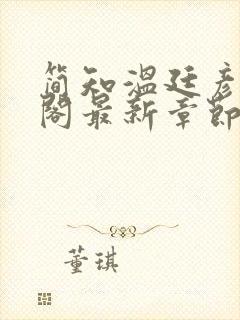 简知温廷彦
阁最新章节
董琪